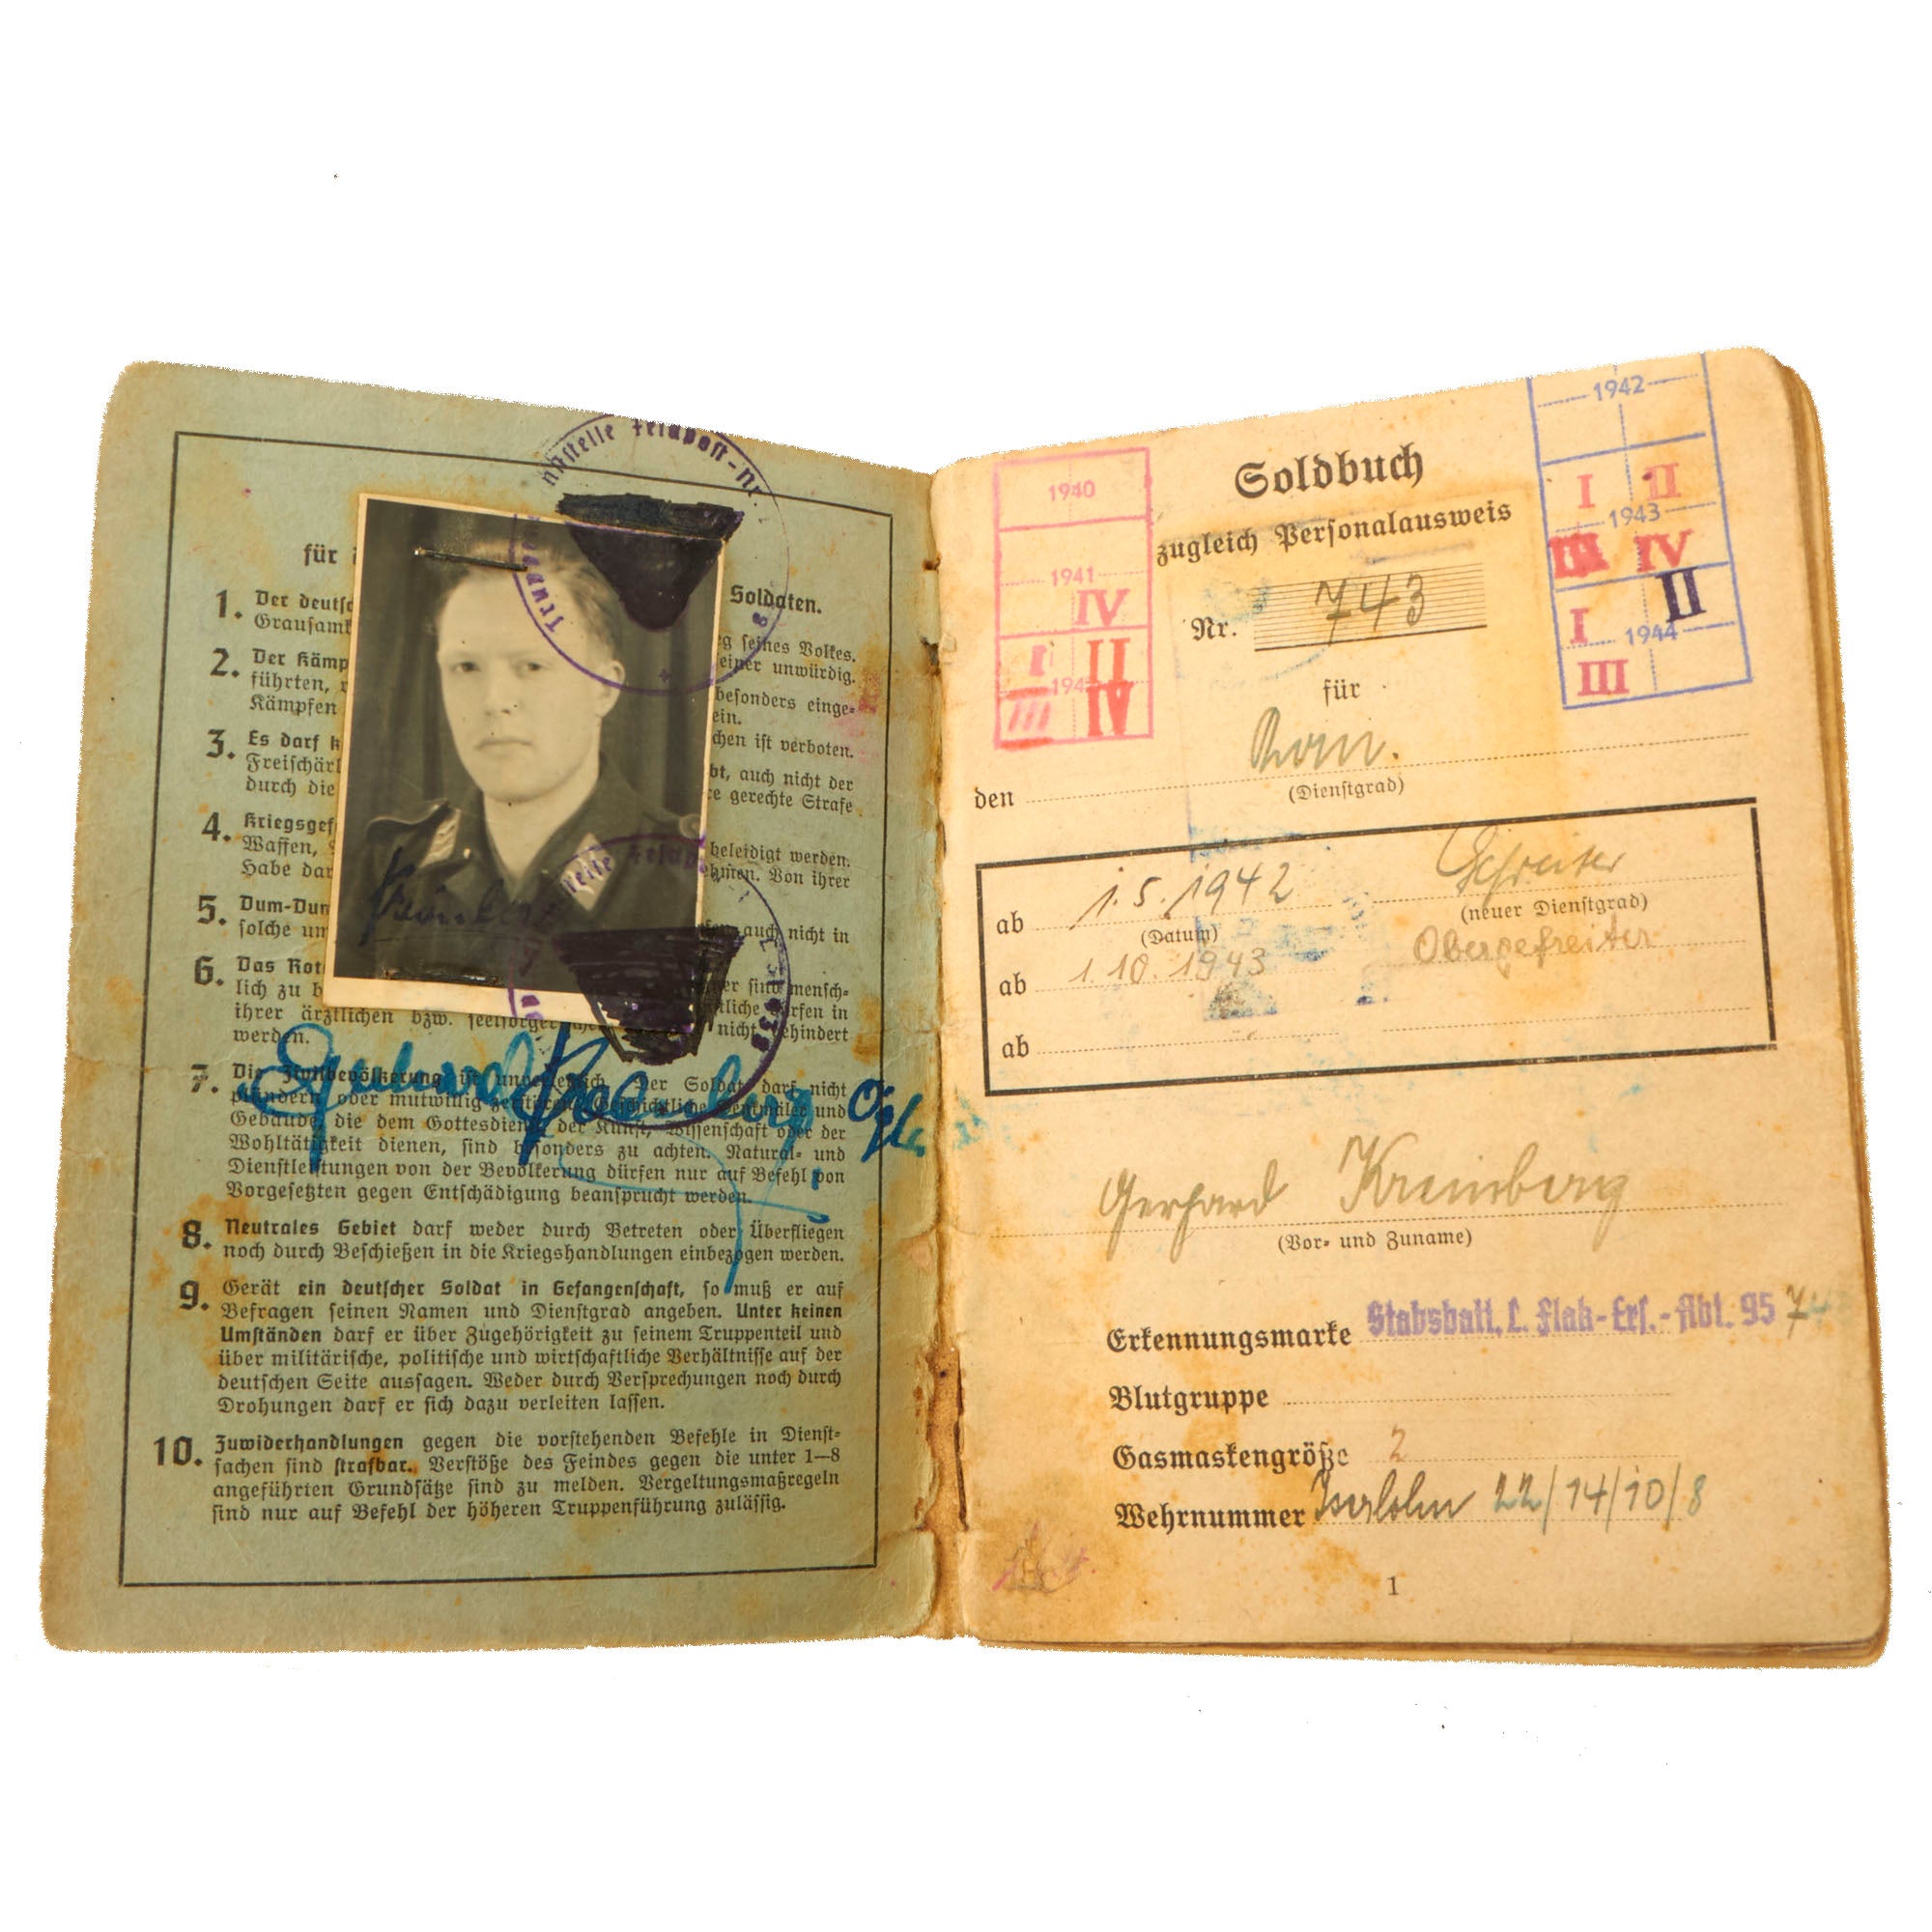 für
Soldaten.
1. Der deutsc
g seines Volkes.
Grausamk
einer unwürdig.
2. Der Kämp
besonders einge-
führten,
ein.
Kämpfen
chen ist verboten.
3. Es darf k
bt, auch nicht der
Freischärl
re gerechte Strafe
durch die
4. Kriegsgef
beleidigt werden.
Waffen,
ehmen. Von ihrer
Habe dar
5. Dum-Dum
auch nicht in
solche um
6. Das Rote
er sind mensch-
lich zu b
tliche dürfen in
ihrer ärztlichen bzw. seelsorger
nicht behindert
werden.
7. Die Zivilbevölkerung ist unverletzlich. Der Soldat darf nicht
plündern oder mutwillig zerstören. Geschichtliche Denkmäler und
Gebäude, die dem Gottesdienst, der Kunst, Wissenschaft oder der
Wohltätigkeit dienen, sind besonders zu achten. Natural- und
Dienstleistungen von der Bevölkerung dürfen nur auf Befehl von
Vorgesetzten gegen Entschädigung beansprucht werden.
8. Neutrales Gebiet darf weder durch Betreten oder Überfliegen
noch durch Beschießen in die Kriegshandlungen einbezogen werden.
9. Gerät ein deutscher Soldat in Gefangenschaft, so muß er auf
Befragen seinen Namen und Dienstgrad angeben. Unter keinen
Umständen darf er über Zugehörigkeit zu seinem Truppenteil und
über militärische, politische und wirtschaftliche Verhältnisse auf der
deutschen Seite aussagen. Weder durch Versprechungen noch durch
Drohungen darf er sich dazu verleiten lassen.
10. Zuwiderhandlungen gegen die vorstehenden Befehle in Dienst-
sachen sind strafbar. Verstöße des Feindes gegen die unter 1—8
angeführten Grundsätze sind zu melden. Vergeltungsmaßregeln
sind nur auf Befehl der höheren Truppenführung zulässig.
1940
1941
IV
I II
194
III IV
1942
I II
1943
III IV
I II
1944
III
Soldbuch
zugleich Personalausweis
Nr. 743
für
den
(Dienstgrad)
ab 1.5.1942 Gefreiter
(Datum) (neuer Dienstgrad)
ab 1.10.1943 Obergefreiter
ab
Gerhard Kreinberg
(Vor- und Zuname)
Erkennungsmarke Stabsbatt. L. Flak-Ers.-Abt. 95 74
Blutgruppe
Gasmaskengröße 2
Wehrnummer Iserlohn 22/14/10/8
1